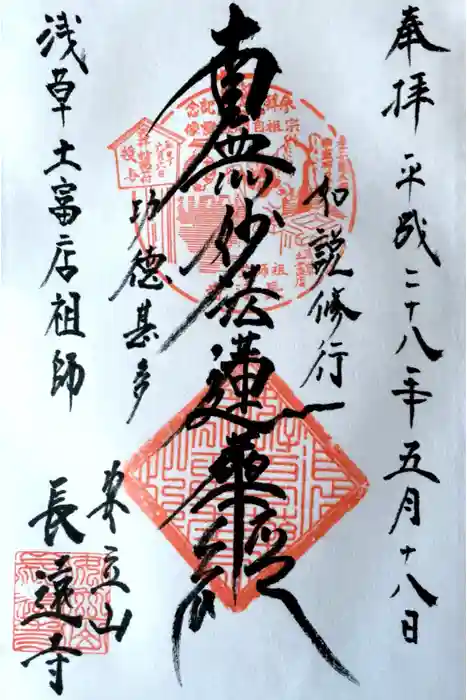 奉拝 平成二十八年五月十八日
如説修行
南無妙法蓮華経
功德甚多
浅草土富店祖師
安立山
長遠寺